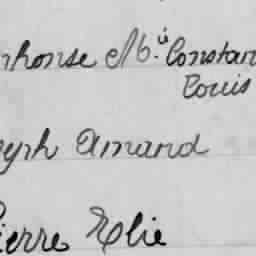 nhonse M. Constan
Louis
eyrh Amand
Pierre Elie